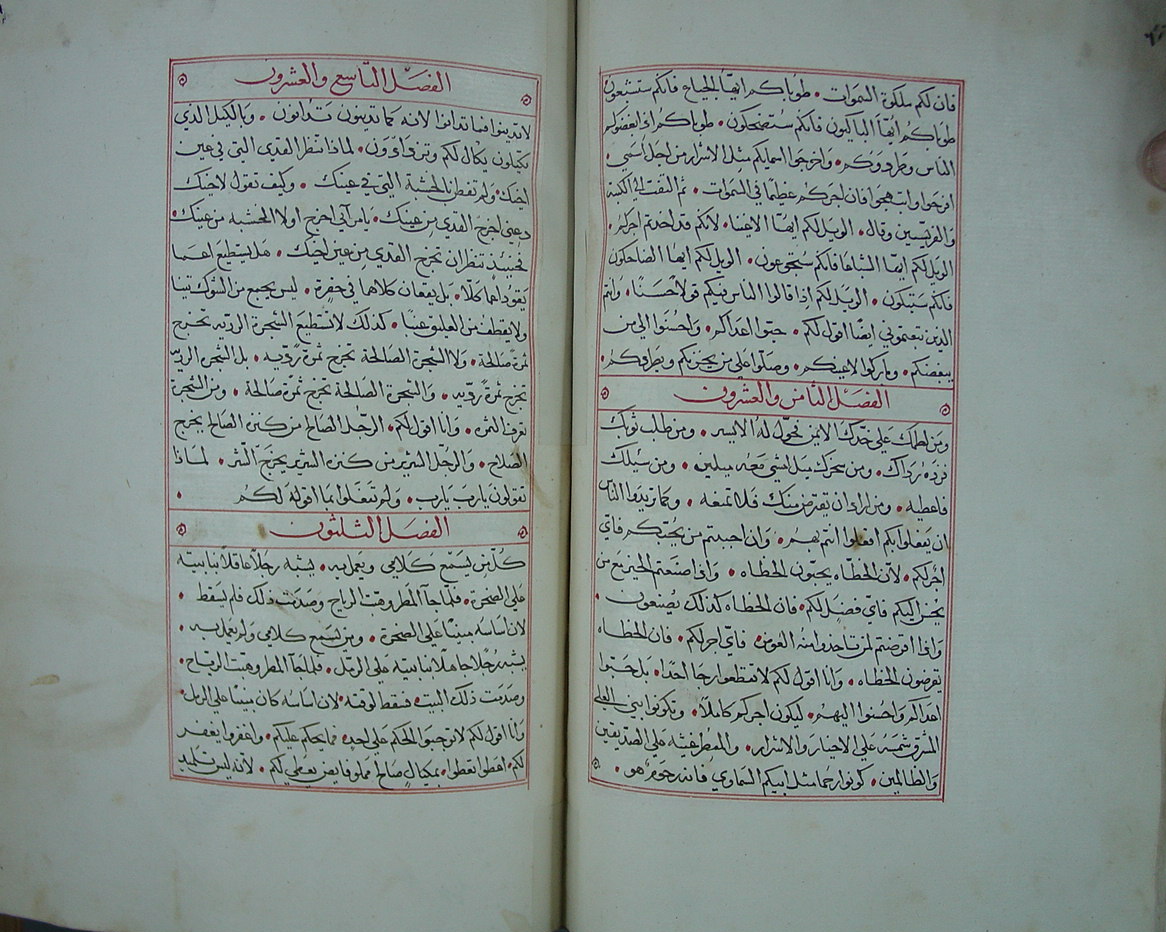 فان لكم ملكوة السموات • طوباكم ايضًا الجياع فانكم ستشبعون
طوباكم ايضًا الباكيون فانكم ستضحكون • طوباكم اذا ابغضوكم
الناس وطردووكم • واخرجوا اسمايكم مثل الاشرار من اجل اسمي •
افرحوا وابتهجوا فان اجركم عظيمًا في السموات • ثم التفت الى الكتبة
والفريسين وقال • الويل لكم ايضًا الاغنيا • لانكم قد اخدتم اجركم •
الويل لكم ايضًا الشباعا فانكم ستجوعون • الويل لكم ايضًا الضاحكون
فانكم ستبكون • الويل لكم اذا قالوا الناس فيكم قولًا حسنًا • وانتم
الذين تسمعوني ايضًا اقول لكم • حبوا اعداكم • واحسنوا الى من
يبغضكم • وباركوا لاعنيكم • وصلوا على من يحزنكم ويطردكم •
الفصل الثامن والعشرون
ومن لطمك على خدك الايمن فحول له الايسر • ومن طلب ثوبك
فزده رداك • ومن سخرك ميل امشي معه ميلين • ومن سيلك
فاعطيه • ومن اراد ان يقترض منك فلا تمنعه • وكما تريدوا الناس
ان يفعلوا بكم افعلوا انتم بهم • وان احببتم من يحبكم فاي
اجر لكم • لان الخطاه يحبون الخطاه • واذا صنعتم الخير مع من
يحسن اليكم فاي فضل لكم • فان الخطاه كذلك يصنعون •
واذا اقرضتم لمن تاخدوا منه العوض • فاي اجر لكم • فان الخطاه
يقرضون الخطاه • وانا اقول لكم لا تقطعوا رجا احدًا • بل حبوا
اعداكم واحسنوا اليهم • ليكون اجركم كاملًا • وتكونوا بني العلي
المشرق شمسه على الاخيار والاشرار • والممطر غيثه على الصديقين
والظالمين • كونوا رحما مثل ابيكم السماوي فانه رحوم هو •
الفصل التاسع والعشرون
لا تدينوا فما تدانوا لانه كما تدينون تدانون • وبالكيل الذي
تكيلون يكال لكم وتزدادوون • لماذا تنظر القدي التي في عين
اخيك • ولم تفطن بالخشبة التي في عينك • وكيف تقول لاخيك
دعني اخرج القدي من عينك • يا مرآي اخرج اولا الخشبه من عينك •
فحينيذ تنظر ان تخرج القدي من عين اخيك • هل يسطيع اعما
يقود اعما كلا • بل يقعان كلاهما في حفرة • ليس يجمع من الشوك تينا
ولا يقطف من العليق عنبا • كذلك لا تسطيع الشجرة الرديه تخرج
ثمرة صالحة • ولا الشجرة الصالحة تخرج ثمرةً رديه • بل الشجرة الرديه
تخرج ثمرةً رديه • والشجرة الصالحة تخرج ثمرة صالحة • ومن الشجرة
تعرف الثمره • وانا اقول لكم • الرجل الصالح من كنزه الصالح يخرج
الصلاح • والرجل الشرير من كنزه الشرير يخرج الشر • لماذا
تقولون يا رب يا رب • ولم تفعلوا بما اقوله لكم •
الفصل الثلثون
كل من يسمع كلامي ويعمل به • يشبه رجلًا عاقلًا بنا بيته
على الصخرة • فلما جآ المطر وهبت الرياح وصدمت ذلك فلم يسقط •
لان اساسه مبنيًا على الصخرة • ومن يسمع كلامي ولم يعمل به •
يشبه رجلا جاهلًا بنا بيته على الرمل • فلما جآ المطر وهبت الرياح •
وصدمت ذلك البيت • فسقط لوقته • لان اساسه كان مبنيا على الرمل •
وانا اقول لكم لا توجبوا الحكم على احد • فما يحكم عليكم • واغفروا يغفر
لكم • اعطوا تعطوا • بمكيال صالح مملو فايض يعطي لكم • لانه ليس تلميد